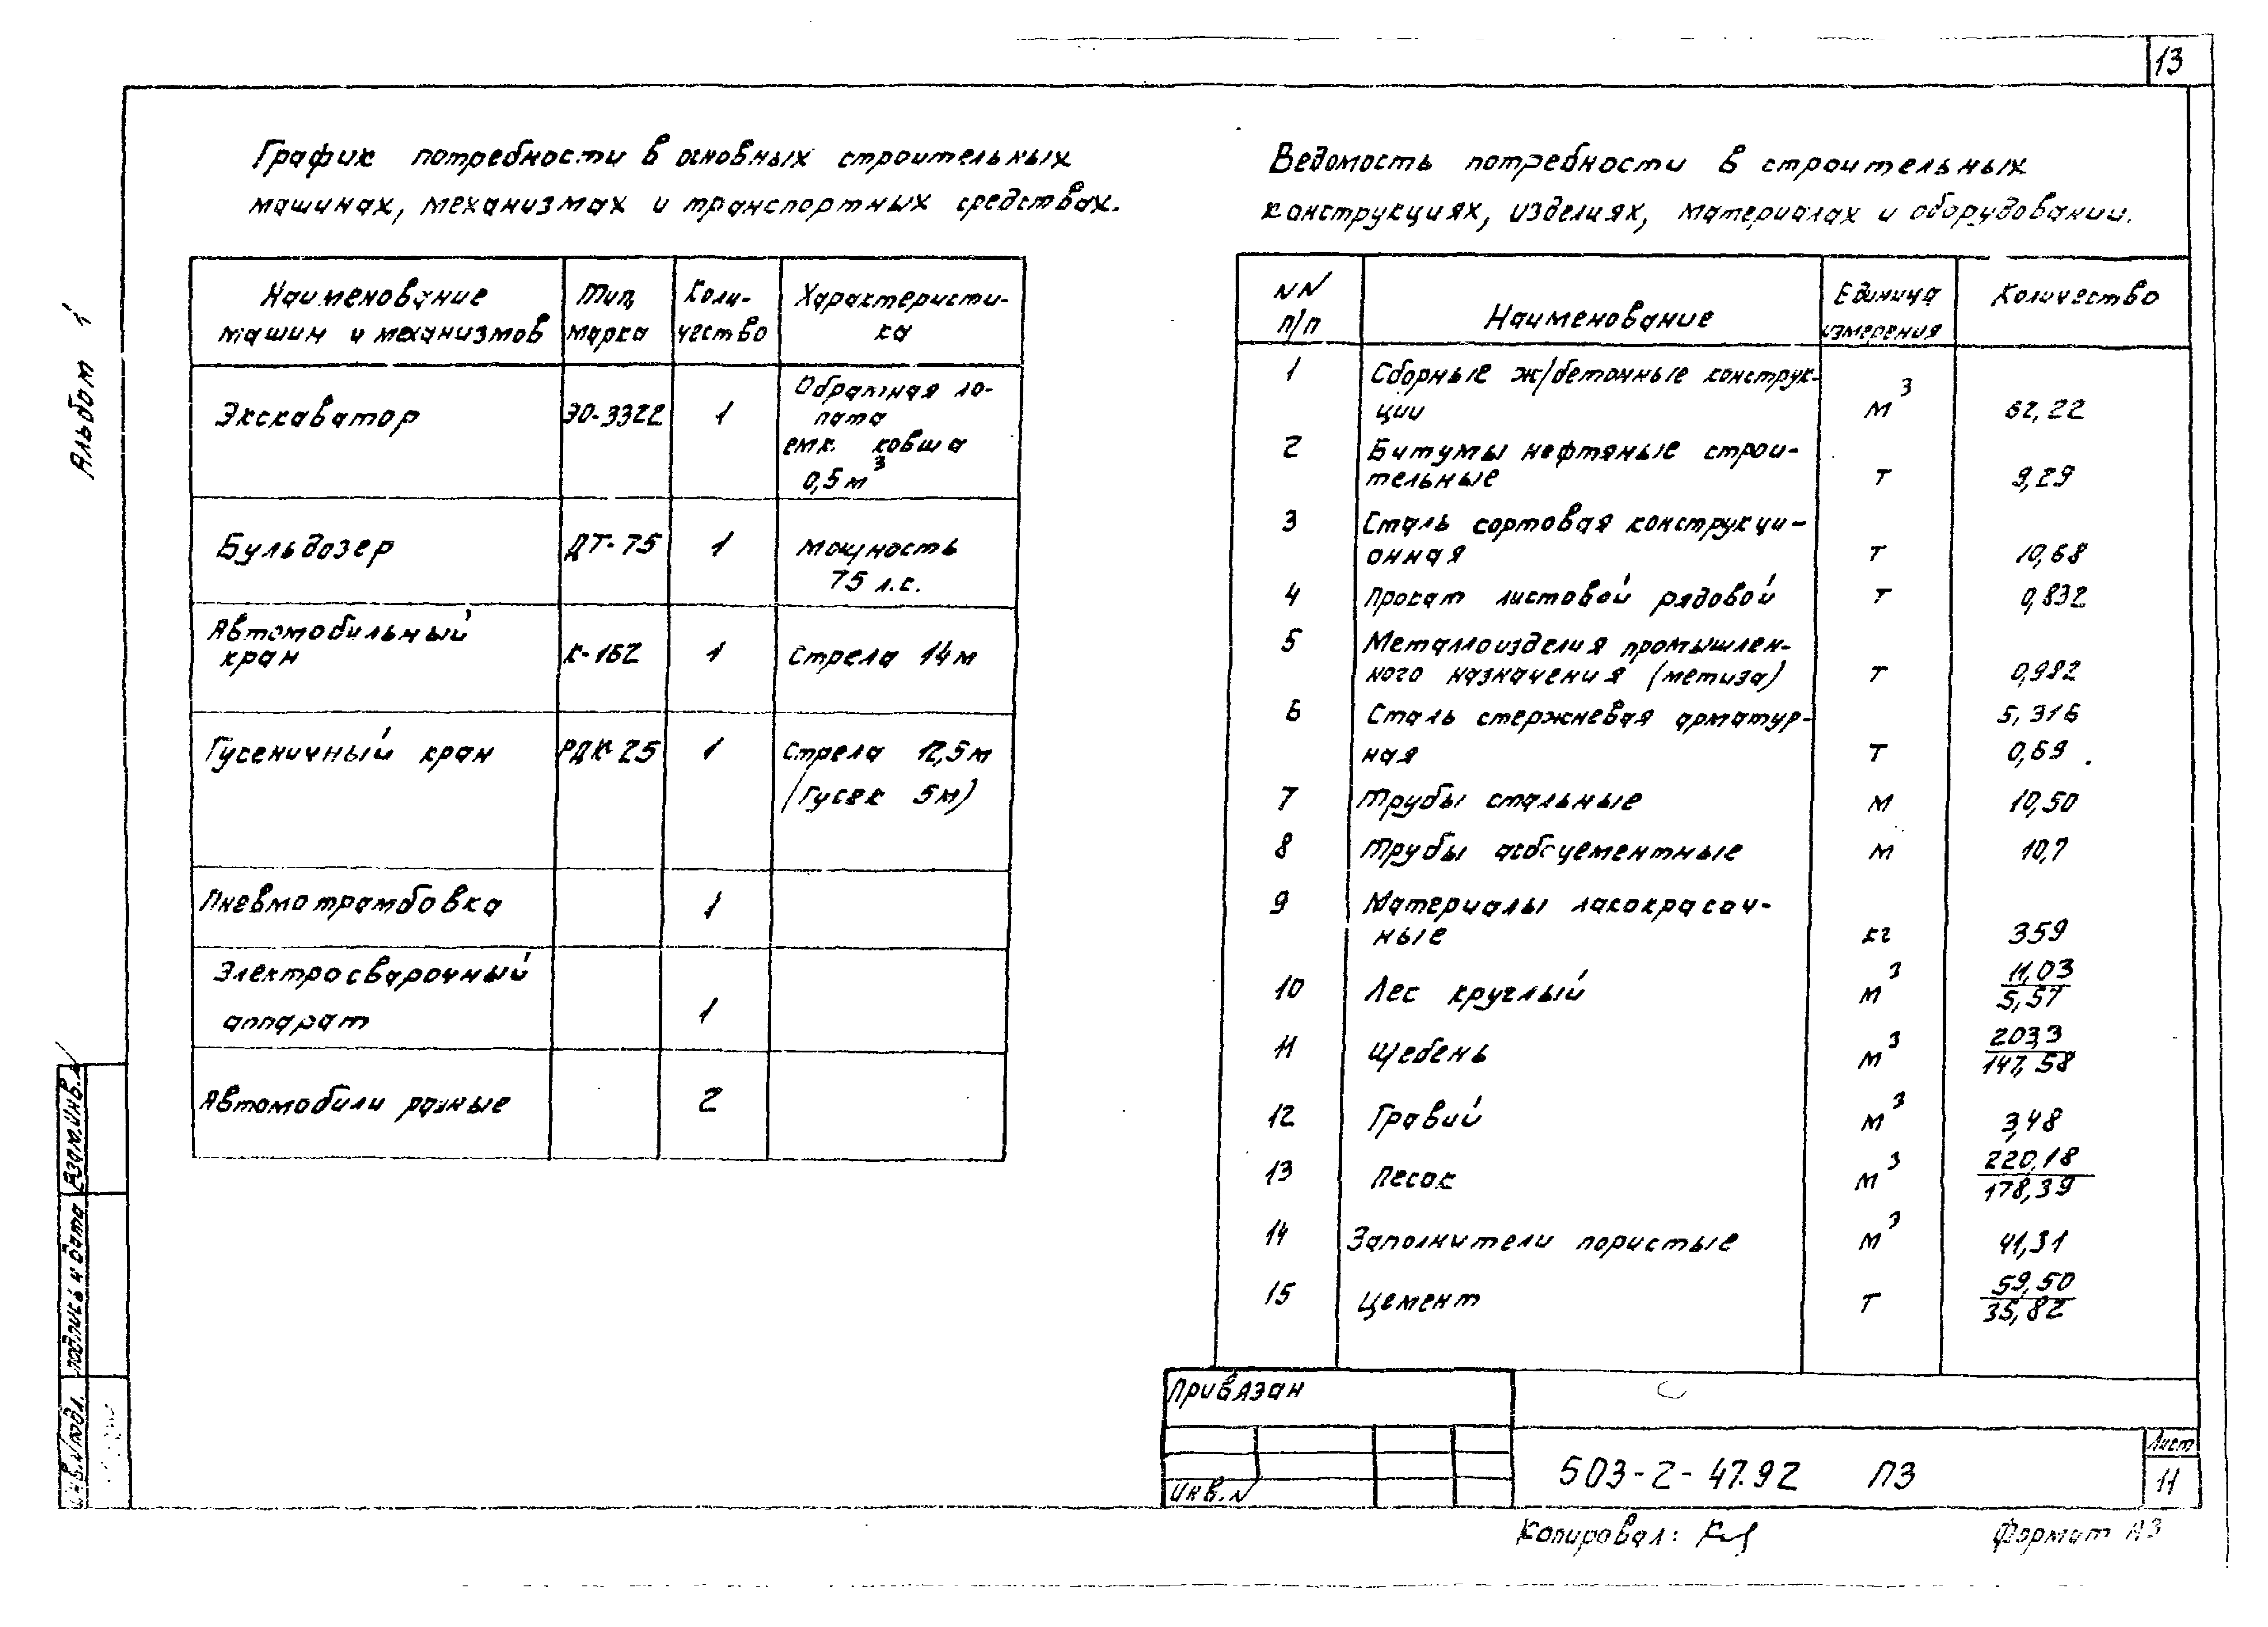 13
Альбом 1
График потребности в основных строительных
машинах, механизмах и транспортных средствах.
Наименование
машин и механизмов
Тип,
марка
Коли-
чество
Характеристи-
ка
Экскаватор ЭО-3322 1
Обратная ло-
пата
емк. ковша
0,5 м³
Бульдозер ДТ-75 1 мощность
75 л.с.
Автомобильный
кран К-162 1 Стрела 14м
Гусеничный кран РДК-25 1 Стрела 12,5м
(Гусек 5м)
Пневмотрамбовка 1
Электросварочный
аппарат 1
Автомобили разные 2
Ведомость потребности в строительных
конструкциях, изделиях, материалах и оборудовании.
NN
п/п
Наименование
Единица
измерения
Количество
1 Сборные ж/бетонные конструк-
ции м³ 62,22
2 Битумы нефтяные строи-
тельные т 9,29
3 Сталь сортовая конструкци-
онная т 10,68
4 Прокат листовой рядовой т 0,832
5 Металлоизделия промышлен-
ного назначения (метиза) т 0,982
6 Сталь стержневая арматур- 5,316
ная т 0,69
7 Трубы стальные м 10,50
8 Трубы асбоцементные м 10,7
9 Материалы лакокрасоч-
ные кг 359
10 Лес круглый м³ 11,03
5,57
11 Щебень м³ 203,3
147,58
12 Гравий м³ 3,48
13 Песок м³ 220,18
178,39
14 Заполнители пористые м³ 41,31
15 Цемент т 59,50
35,82
Привязан
Инв.N
503-2-47.92 ПЗ
Лист
11
Копировал:
Формат А3
Взам.инв.N
Подпись и дата
Инв.N подл.